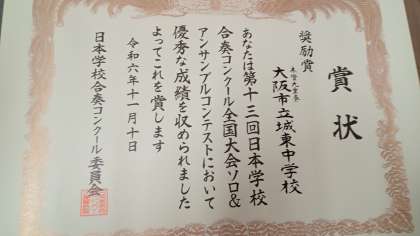 賞状
奨励賞
木管八重奏
大阪市立城東中学校
あなたは第十三回日本学校
合奏コンクール全国大会ソロ&
アンサンブルコンテストにおいて
優秀な成績を収められました
よってこれを賞します
令和六年十一月十日
日本学校合奏コンクール委員会